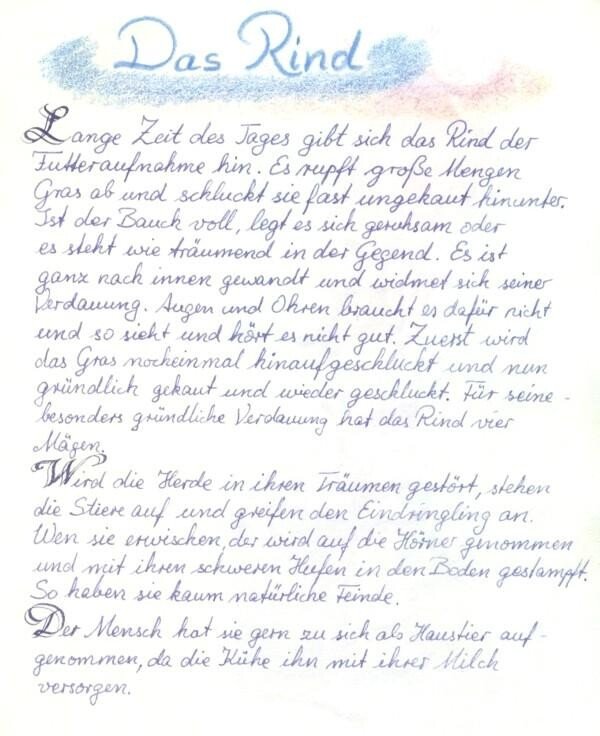 Das Rind
Lange Zeit des Tages gibt sich das Rind der
Futteraufnahme hin. Es rupft große Mengen
Gras ab und schluckt sie fast ungekaut hinunter.
Ist der Bauch voll, legt es sich geruhsam oder
es steht wie träumend in der Gegend. Es ist
ganz nach innen gewandt und widmet sich seiner
Verdauung. Augen und Ohren braucht es dafür nicht
und so sieht und hört es nicht gut. Zuerst wird
das Gras nocheinmal hinaufgeschluckt und nun
gründlich gekaut und wieder geschluckt. Für seine-
besonders gründliche Verdauung hat das Rind vier
Mägen.
Wird die Herde in ihren Träumen gestört, stehen
die Stiere auf und greifen den Eindringling an.
Wen sie erwischen, der wird auf die Hörner genommen
und mit ihren schweren Hufen in den Boden gestampft.
So haben sie kaum natürliche Feinde.
Der Mensch hat sie gern zu sich als Haustier auf-
genommen, da die Kühe ihn mit ihrer Milch
versorgen.